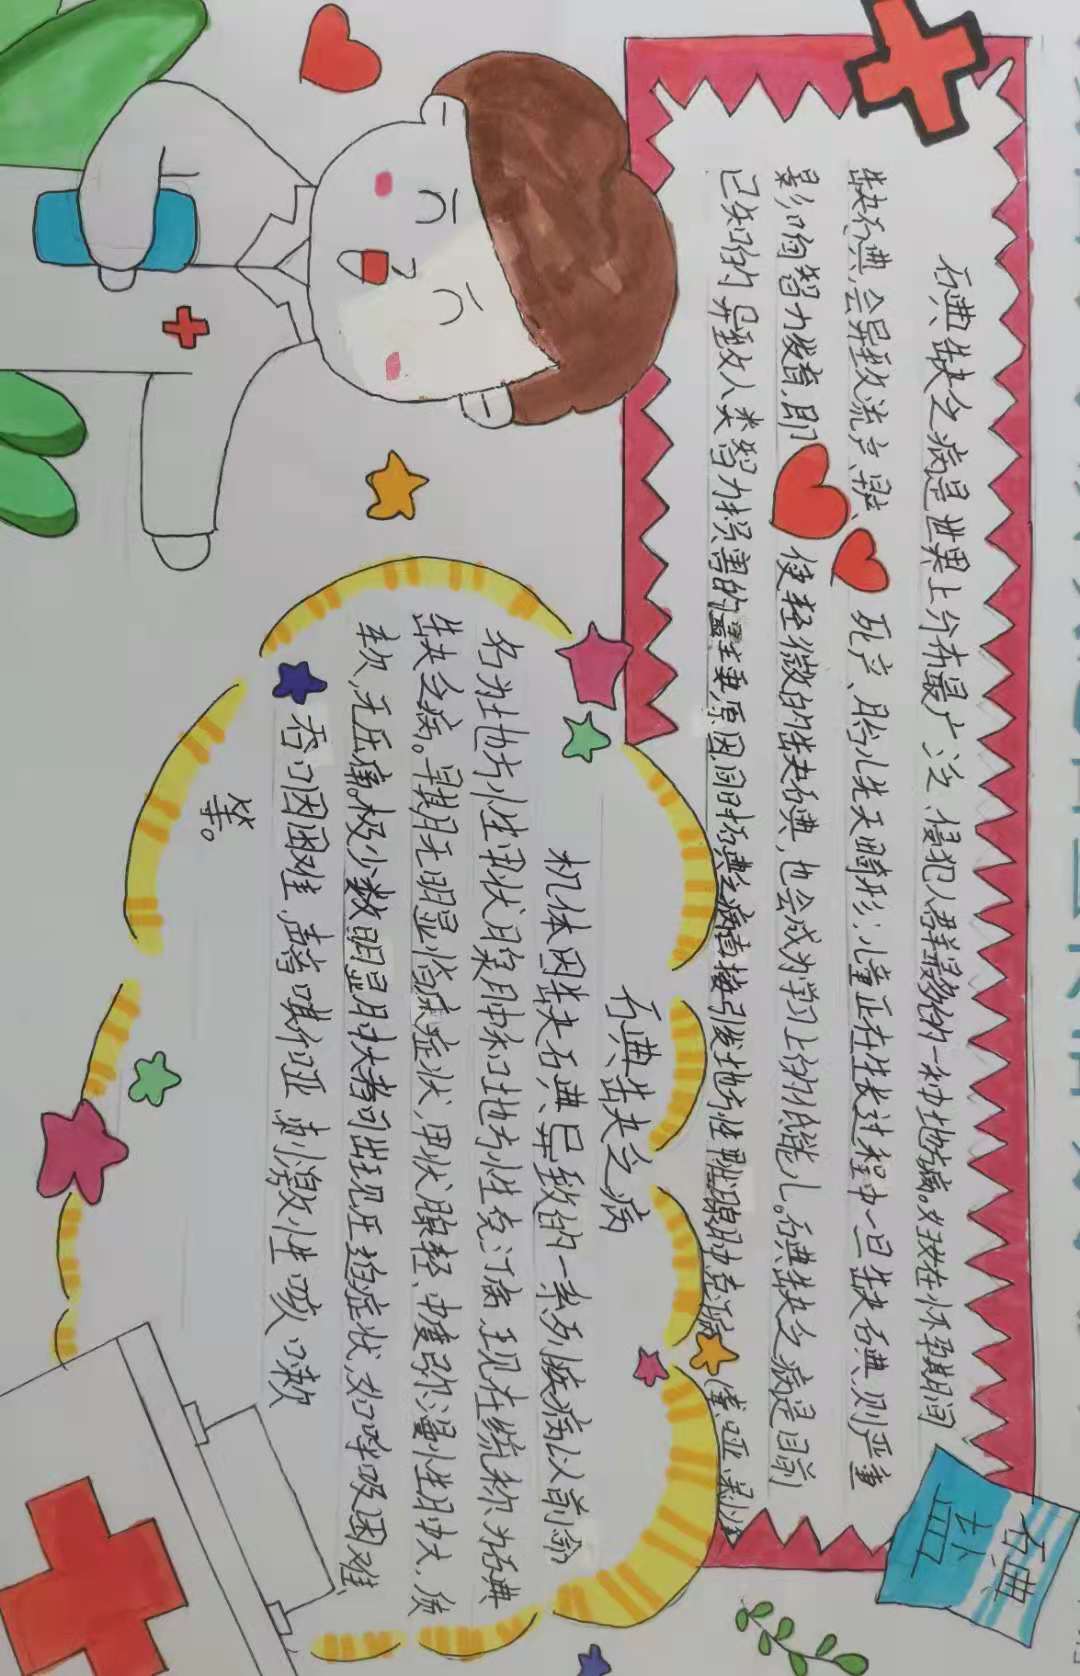 碘缺乏病是世界上分布最广泛、侵犯人群最多的一种地病。妇女在怀孕期间
缺碘,会导致流产、早产、死产、胎儿先天畸形;儿童正在生长过程中一旦缺碘,则严重
影响智力发育,即使轻微的缺碘,也会成为学习上的低能儿。碘缺乏病是目前
已知的导致人类智力损害的最主要原因,同时碘缺乏病直接引发地方性甲状腺肿克汀病
碘盐
碘缺乏病
机体因缺碘导致的一系列疾病以前命
名为地方性甲状腺肿和地方性克汀病,现在统称为碘
缺乏病。早期无明显临床症状,甲状腺轻、中度弥漫性肿大,质
软,无压痛。极少数明显肿大者可出现压迫症状,如呼吸困难、
吞口困难、声音嘶哑、刺激性咳嗽
等。